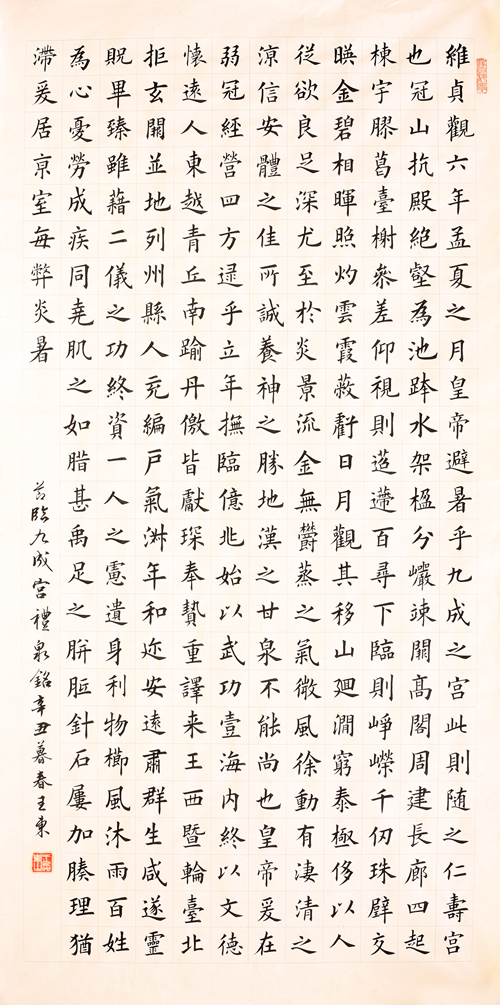 維貞觀六年孟夏之月皇帝避暑乎九成之宮此則随之仁壽宮
也冠山抗殿絕壑為池跨水架楹分巖竦闕高閣周建長廊四起
棟宇膠葛臺榭參差仰視則迢遰百尋下臨則崢嶸千仞珠壁交
暎金碧相暉照灼雲霞蔽虧日月觀其移山廻澗窮泰極侈以人
從欲良足深尤至於炎景流金無欝蒸之氣微風徐動有凄清之
涼信安體之佳所誠養神之勝地漢之甘泉不能尚也皇帝爰在
弱冠經營四方逯乎立年撫臨億兆始以武功壹海内終以文德
懷遠人東越青丘南踰丹儌皆獻琛奉贄重譯来王西暨輪臺北
拒玄闕並地列州縣人充編戶氣淑年和迩安遠肅群生咸遂靈
貺畢臻雖藉二儀之功終資一人之慮遺身利物櫛風沐雨百姓
為心憂勞成疾同堯肌之如腊甚禹足之胼胝針石屢加腠理猶
滯爰居京室每弊炎暑
臨九成宮禮泉銘辛丑暮春王東